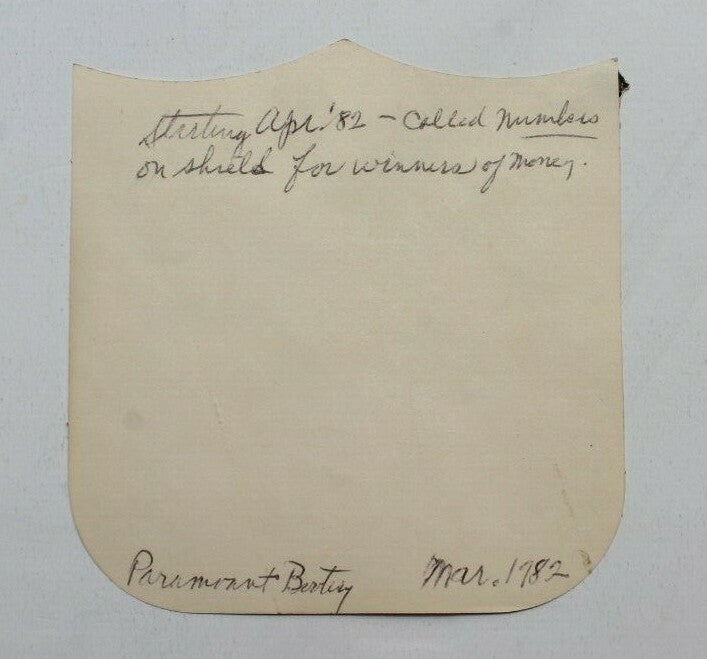 Starting Apr. '82 - Called Numbers
on shield for winners of money.
Paramount Mar. 1982